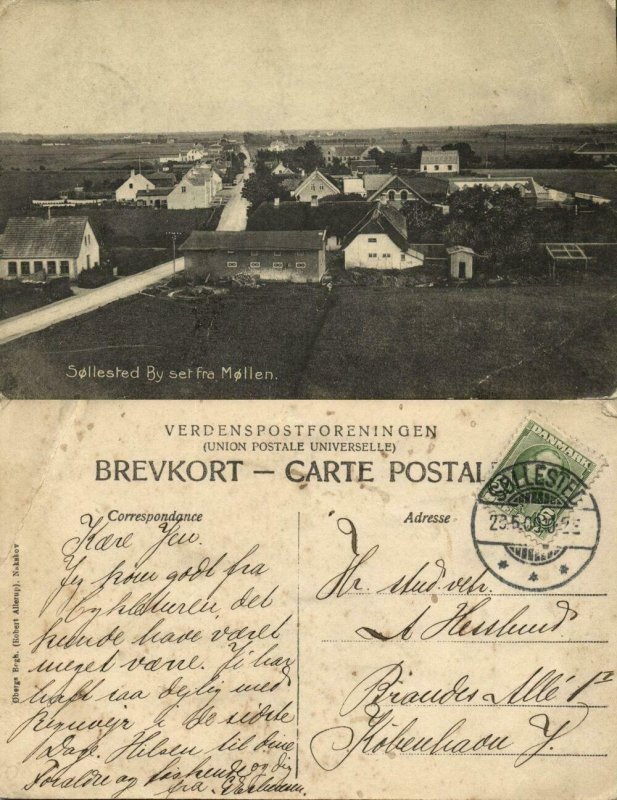 Søllested By set fra Møllen.
VERDENSPOSTFORENINGEN
(UNION POSTALE UNIVERSELLE)
BREVKORT — CARTE POSTALE
DANMARK
SØLLESTED
Correspondance
Adresse
Øbergs Bogh. (Robert Allerup), Nakskov
Kære Jen.
Jeg kom godt fra
Cykleturen, det
kunde have været
meget værre. Vi har
haft saa dejlig med
Regnvejr i de sidste
Dage. Hilsen til dine
Foraldre og Søskende og dig
fra
Hr. stud. vet.
A Hesslund.
Brandes Allé 1
København V.